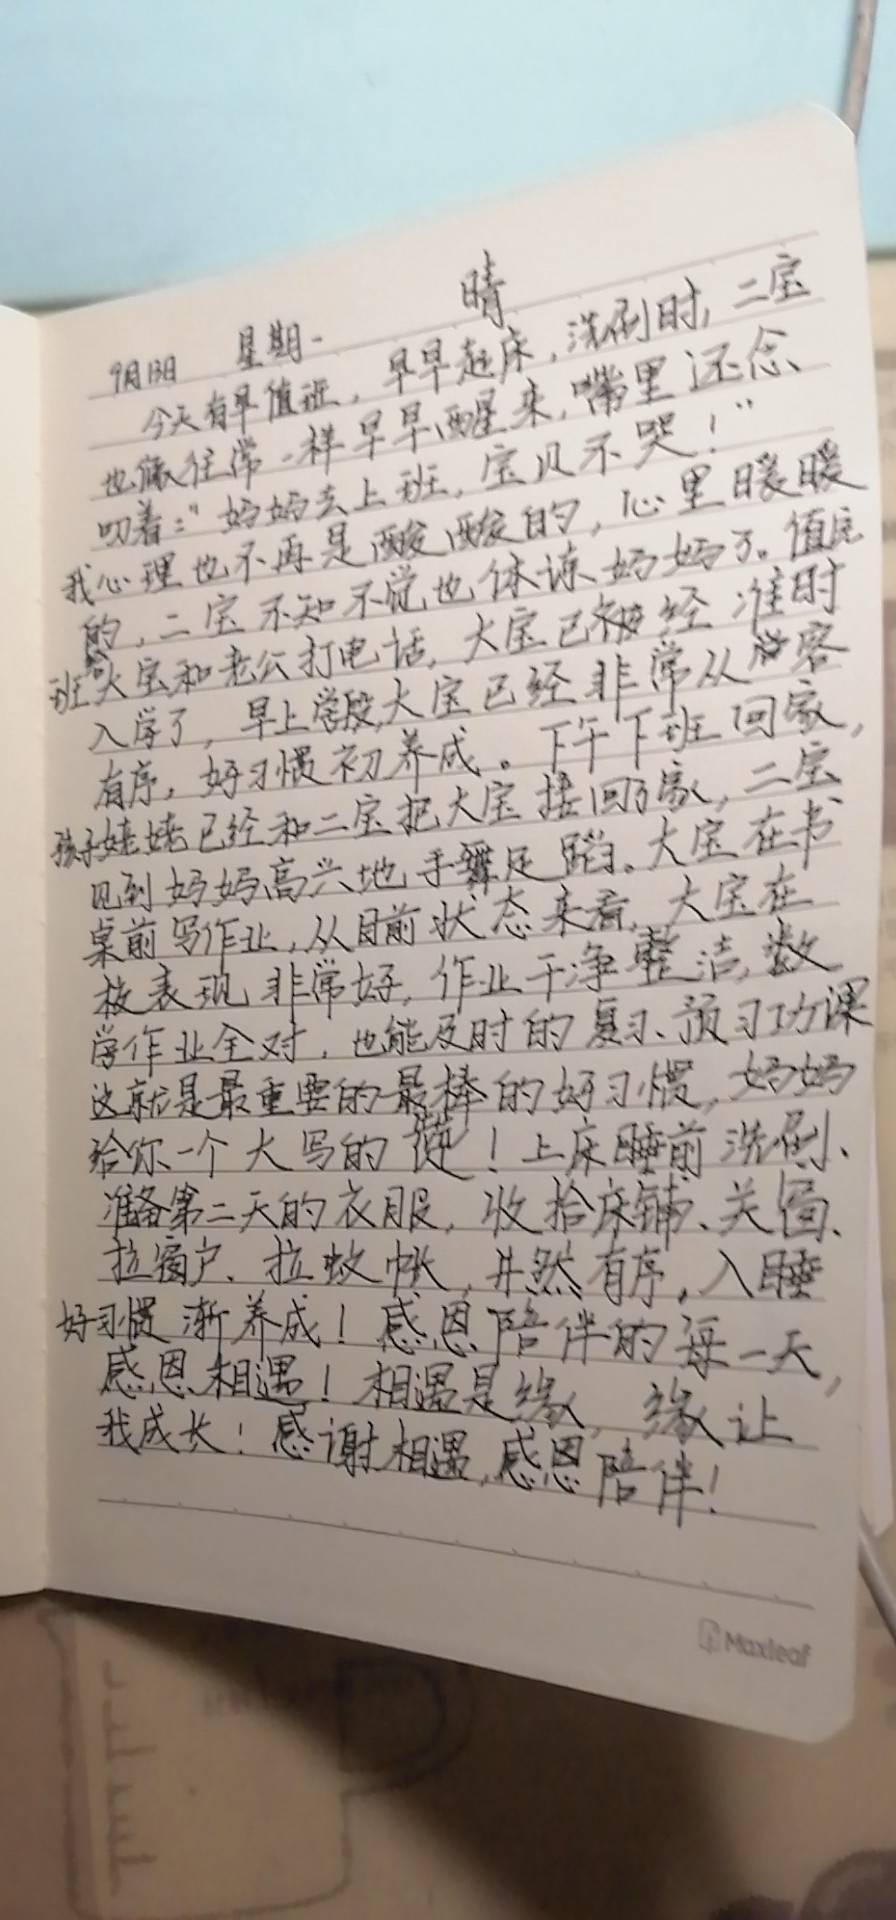 9月13日 星期一 晴
今天有早值班，早早起床，洗刷时，二宝
也像往常一样早早醒来，嘴里还念
叨着：“妈妈去上班，宝贝不哭！”
我心理也不再是酸酸的，心里暖暖
的，二宝不知不觉也体谅妈妈了。值完
班给大宝和老公打电话，大宝已经准时
入学了，早上学段，大宝已经非常从容
有序，好习惯初养成。下午下班回家，
孩子姥姥已经和二宝把大宝接回了家，二宝
见到妈妈高兴地手舞足蹈。大宝在书
桌前写作业，从目前状态来看，大宝在
校表现非常好，作业干净整洁，数
学作业全对，也能及时的复习、预习功课
这就是最重要的最棒的好习惯，妈妈
给你一个大写的赞！上床睡前洗刷、
准备第二天的衣服，收拾床铺、关窗、
拉窗户、拉蚊帐，井然有序，入睡
好习惯渐养成！感恩陪伴的每一天，
感恩相遇！相遇是缘，缘让
我成长！感谢相遇，感恩陪伴！
Maxleaf